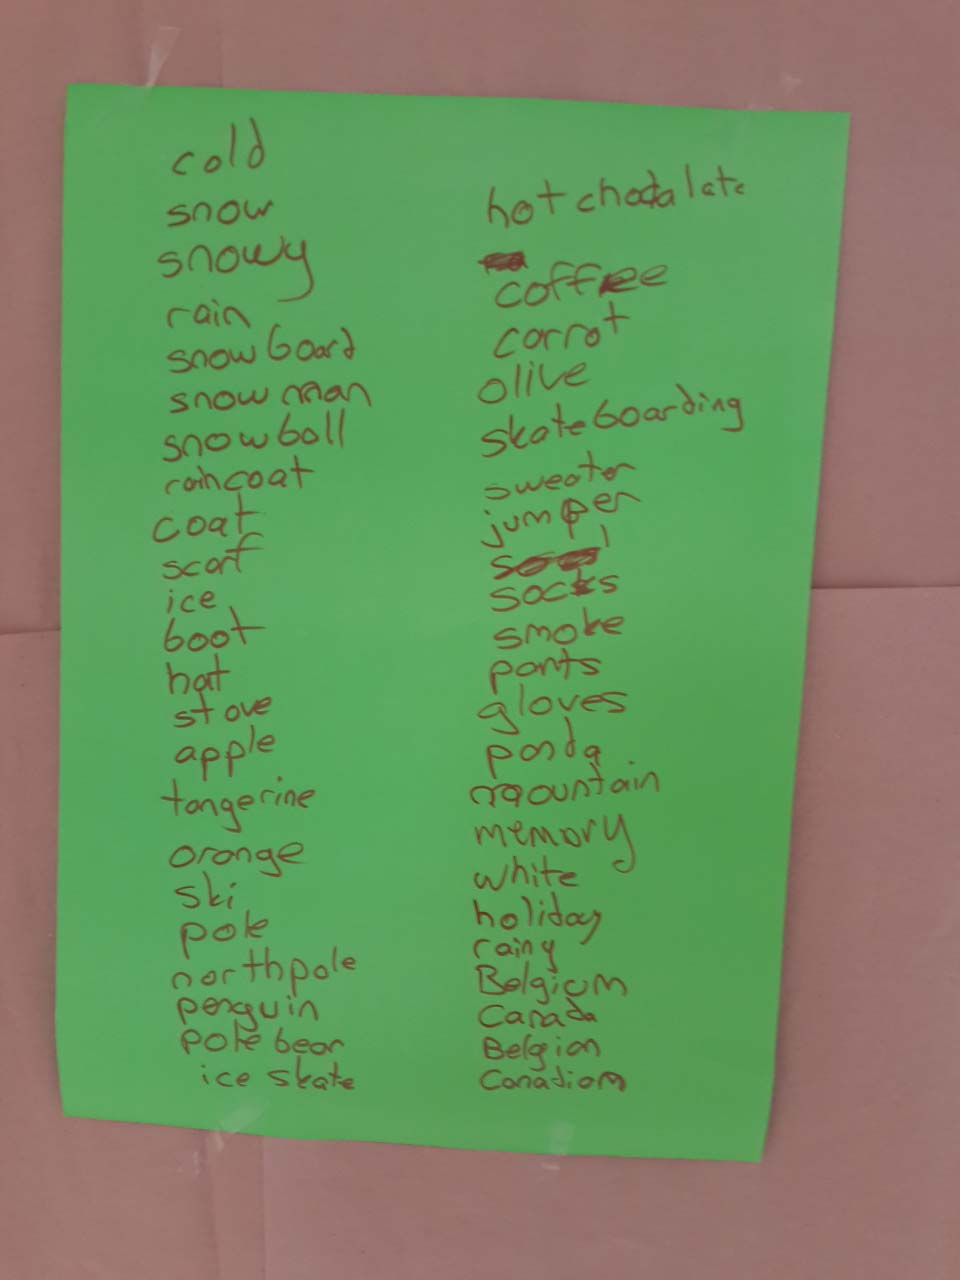 cold
snow
snowy
rain
snowboard
snowman
snowball
raincoat
coat
scarf
ice
boot
hat
stove
apple
tangerine
orange
ski
pole
north pole
penguin
pole bear
ice skate
hot chocalate
coffee
carrot
olive
skateboarding
sweater
jumper
socks
smoke
pants
gloves
panda
mountain
memory
white
holiday
rainy
Belgium
Canada
Belgian
Canadiam